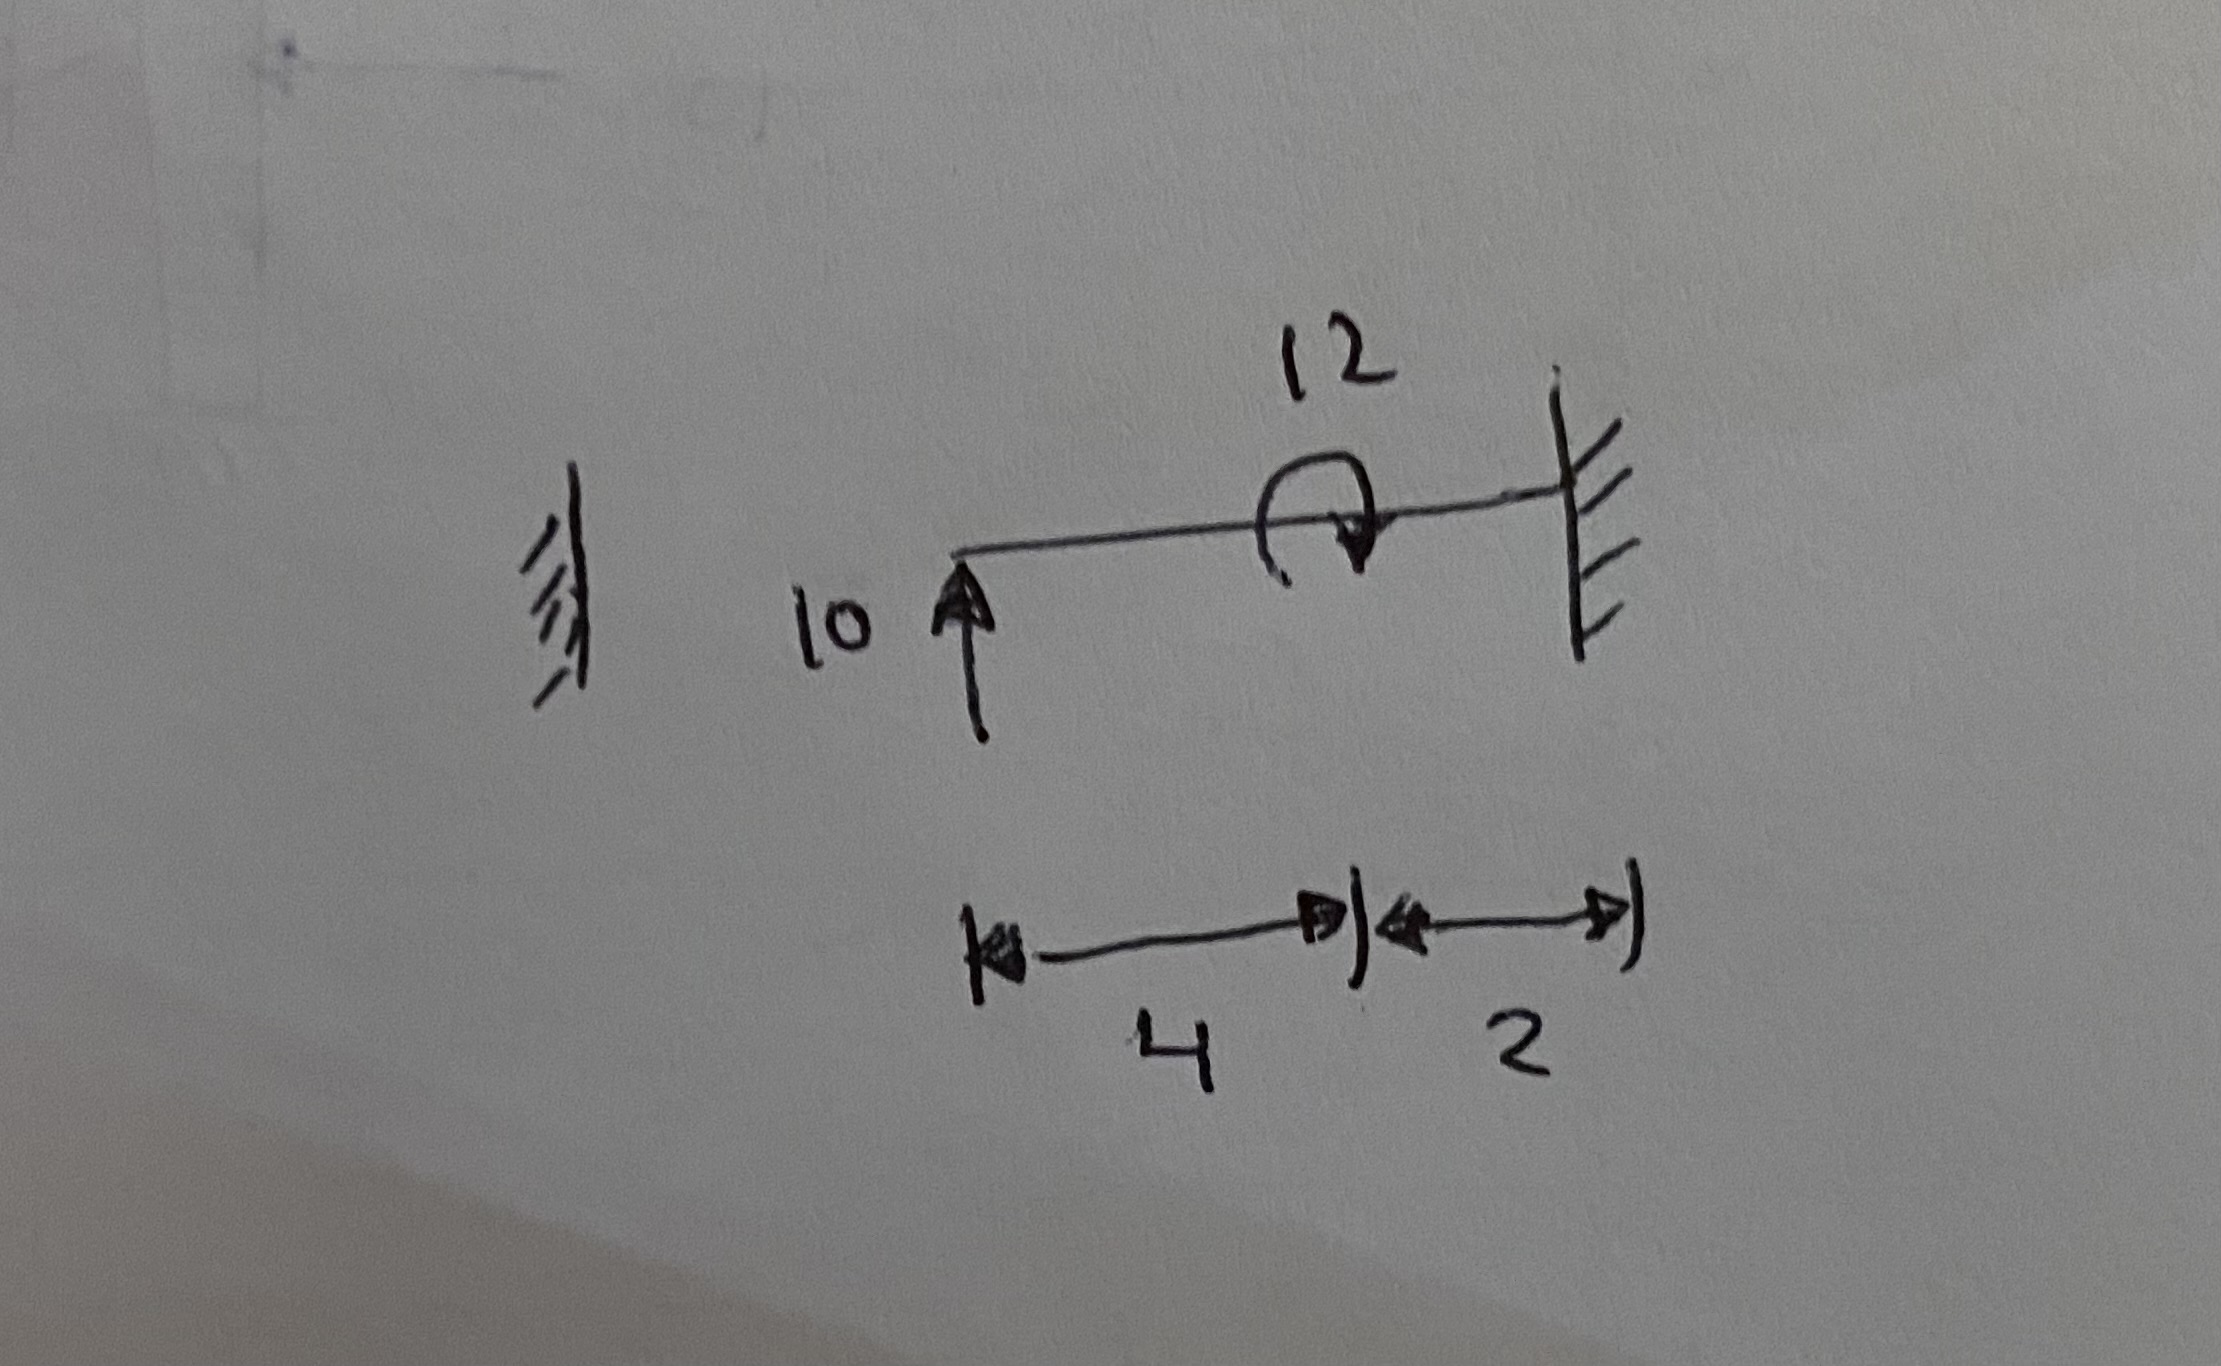 12
10
4
2